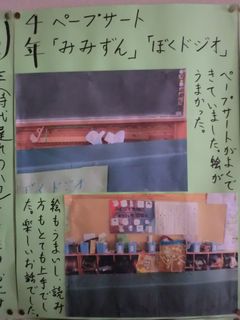 4年 ペープサート
「みみずん」「ぼくドジオ」
ペープサートがよくで
きていました。絵が
うまかった。
ぼくドジオ
絵もうまいし、読み
方もとても上手でし
た。楽しいお話でした。